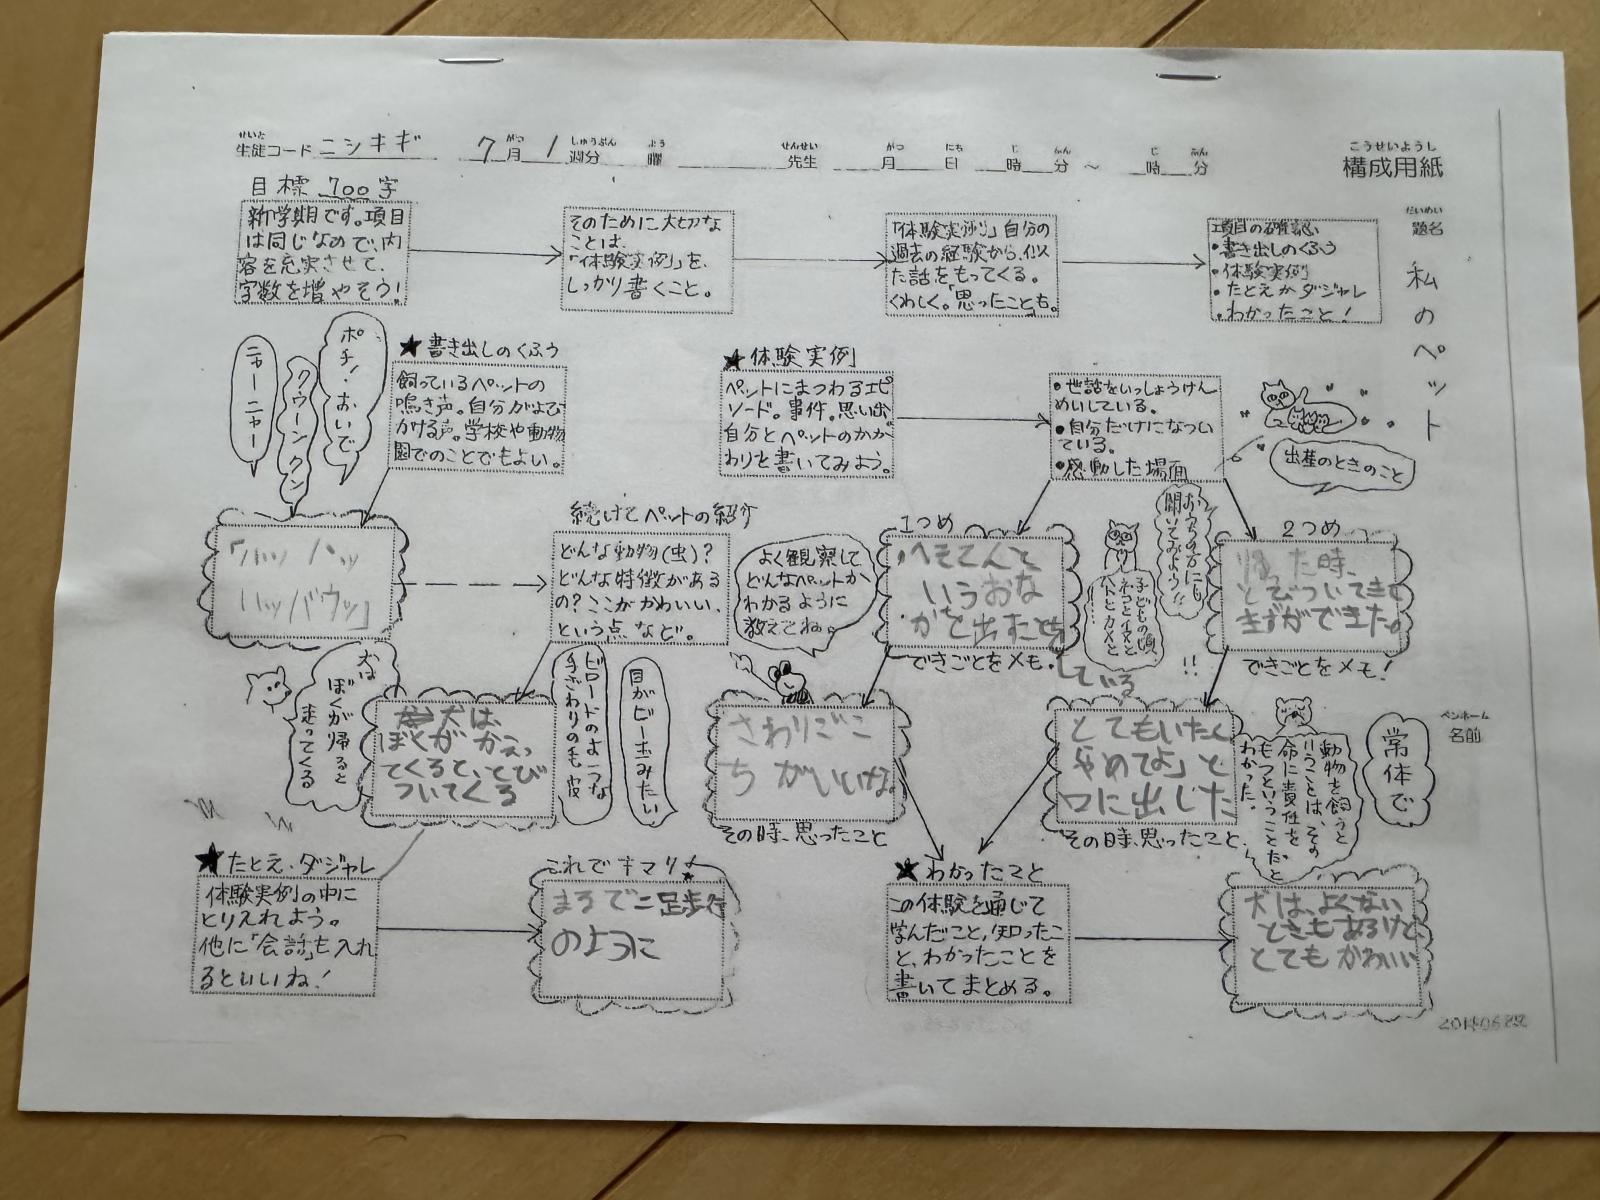 せいと
生徒コード ニシキギ 7月 1週分 曜 先生 月 日 時 分 ～ 時 分
がつ しゅうぶん よう せんせい がつ にち じ ふん じ ふん
こうせいようし
構成用紙
目標 700字
新学期です。項目
は同じなので、内
容を充実させて、
字数を増やそう!
そのために大切な
ことは、
「体験実例」を、
しっかり書くこと。
「体験実例」自分の
過去の経験から、似
た話をもってくる。
くわしく。「思ったことも。
項目の確認
・書き出しのくふう
・体験実例
・たとえかダジャレ
・わかったこと!
だいめい
題名
私のペット
ポチ!おいで
クウーンクン
ニャーニャー
★書き出しのくふう
飼っているペットの
鳴き声。自分がよび
かける声。学校や動物
園でのことでもよい。
★体験実例
ペットにまつわるエピ
ソード。事件。思い出。
自分とペットのかか
わりを書いてみよう。
・世話をいっしょうけん
めいしている。
・自分だけになつい
ている。
・感動した場面
出産のときのこと
「ハッハッ
ハッバウッ」
続けてペットの紹介
どんな動物(虫)?
どんな特徴がある
の?ここがかわいい、
という点など。
よく観察して
どんなペットか
わかるように
教えてね。
1つめ
へそてんと
いうおな
かを出すことを
している
できごとをメモ!
おうちの方にも
聞いてみよう!!
子どもの頃
ネコとイヌと
ハトとカメと
!!
2つめ
帰った時、
とびついてきて
きずができた。
できごとをメモ!
犬は
ぼくが帰ると
走ってくる
犬は、
ぼくがかえっ
てくると、とび
ついてくる
ビロードのような
手ざわりの毛皮
目がビー玉みたい
さわりごこ
ちがいいな。
その時、思ったこと
とてもいたく
やめてよ」と
口に出した
その時、思ったこと
動物を飼うと
いうことは、その
命に責任を
もつということだと
わかった。
常体で
ペンネーム
名前
★たとえ・ダジャレ
体験実例の中に
とりいれよう。
他に「会話」も入れ
るといいね!
これでキマリ!
まるで二足歩行
のように
★わかったこと
この体験を通じて
学んだこと、知ったこ
と、わかったことを
書いてまとめる。
犬は、よくない
ときもあるけど、
とてもかわいい